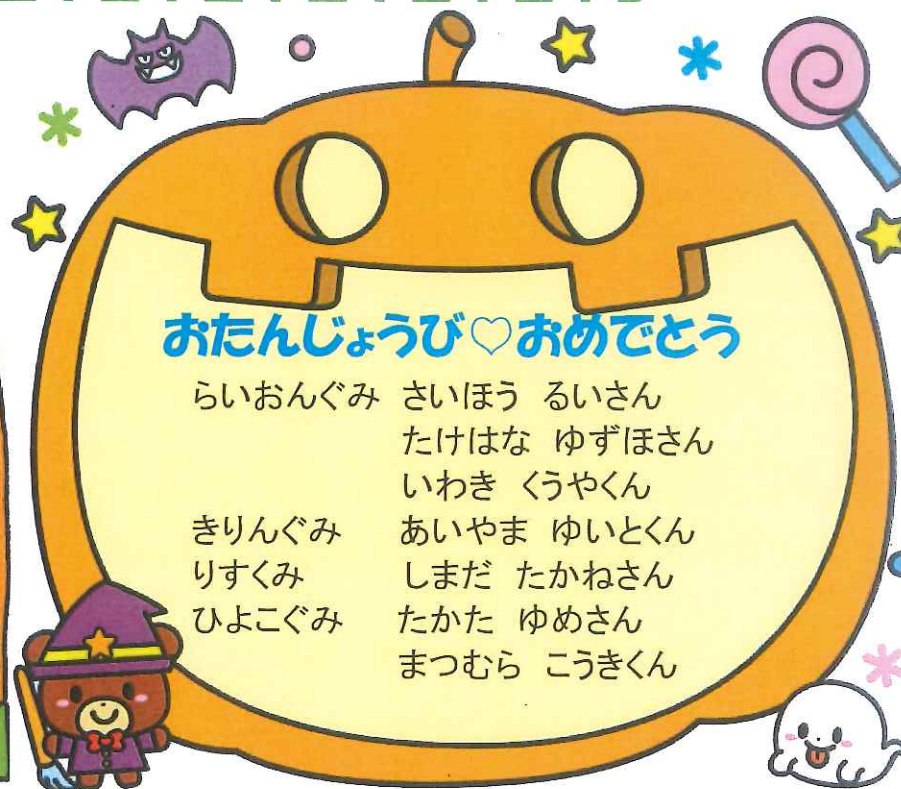 おたんじょうび♡おめでとう
らいおんぐみ さいほう るいさん
たけはな ゆずほさん
いわき くうやくん
きりんぐみ あいやま ゆいとくん
りすくみ しまだ たかねさん
ひよこぐみ たかた ゆめさん
まつむら こうきくん